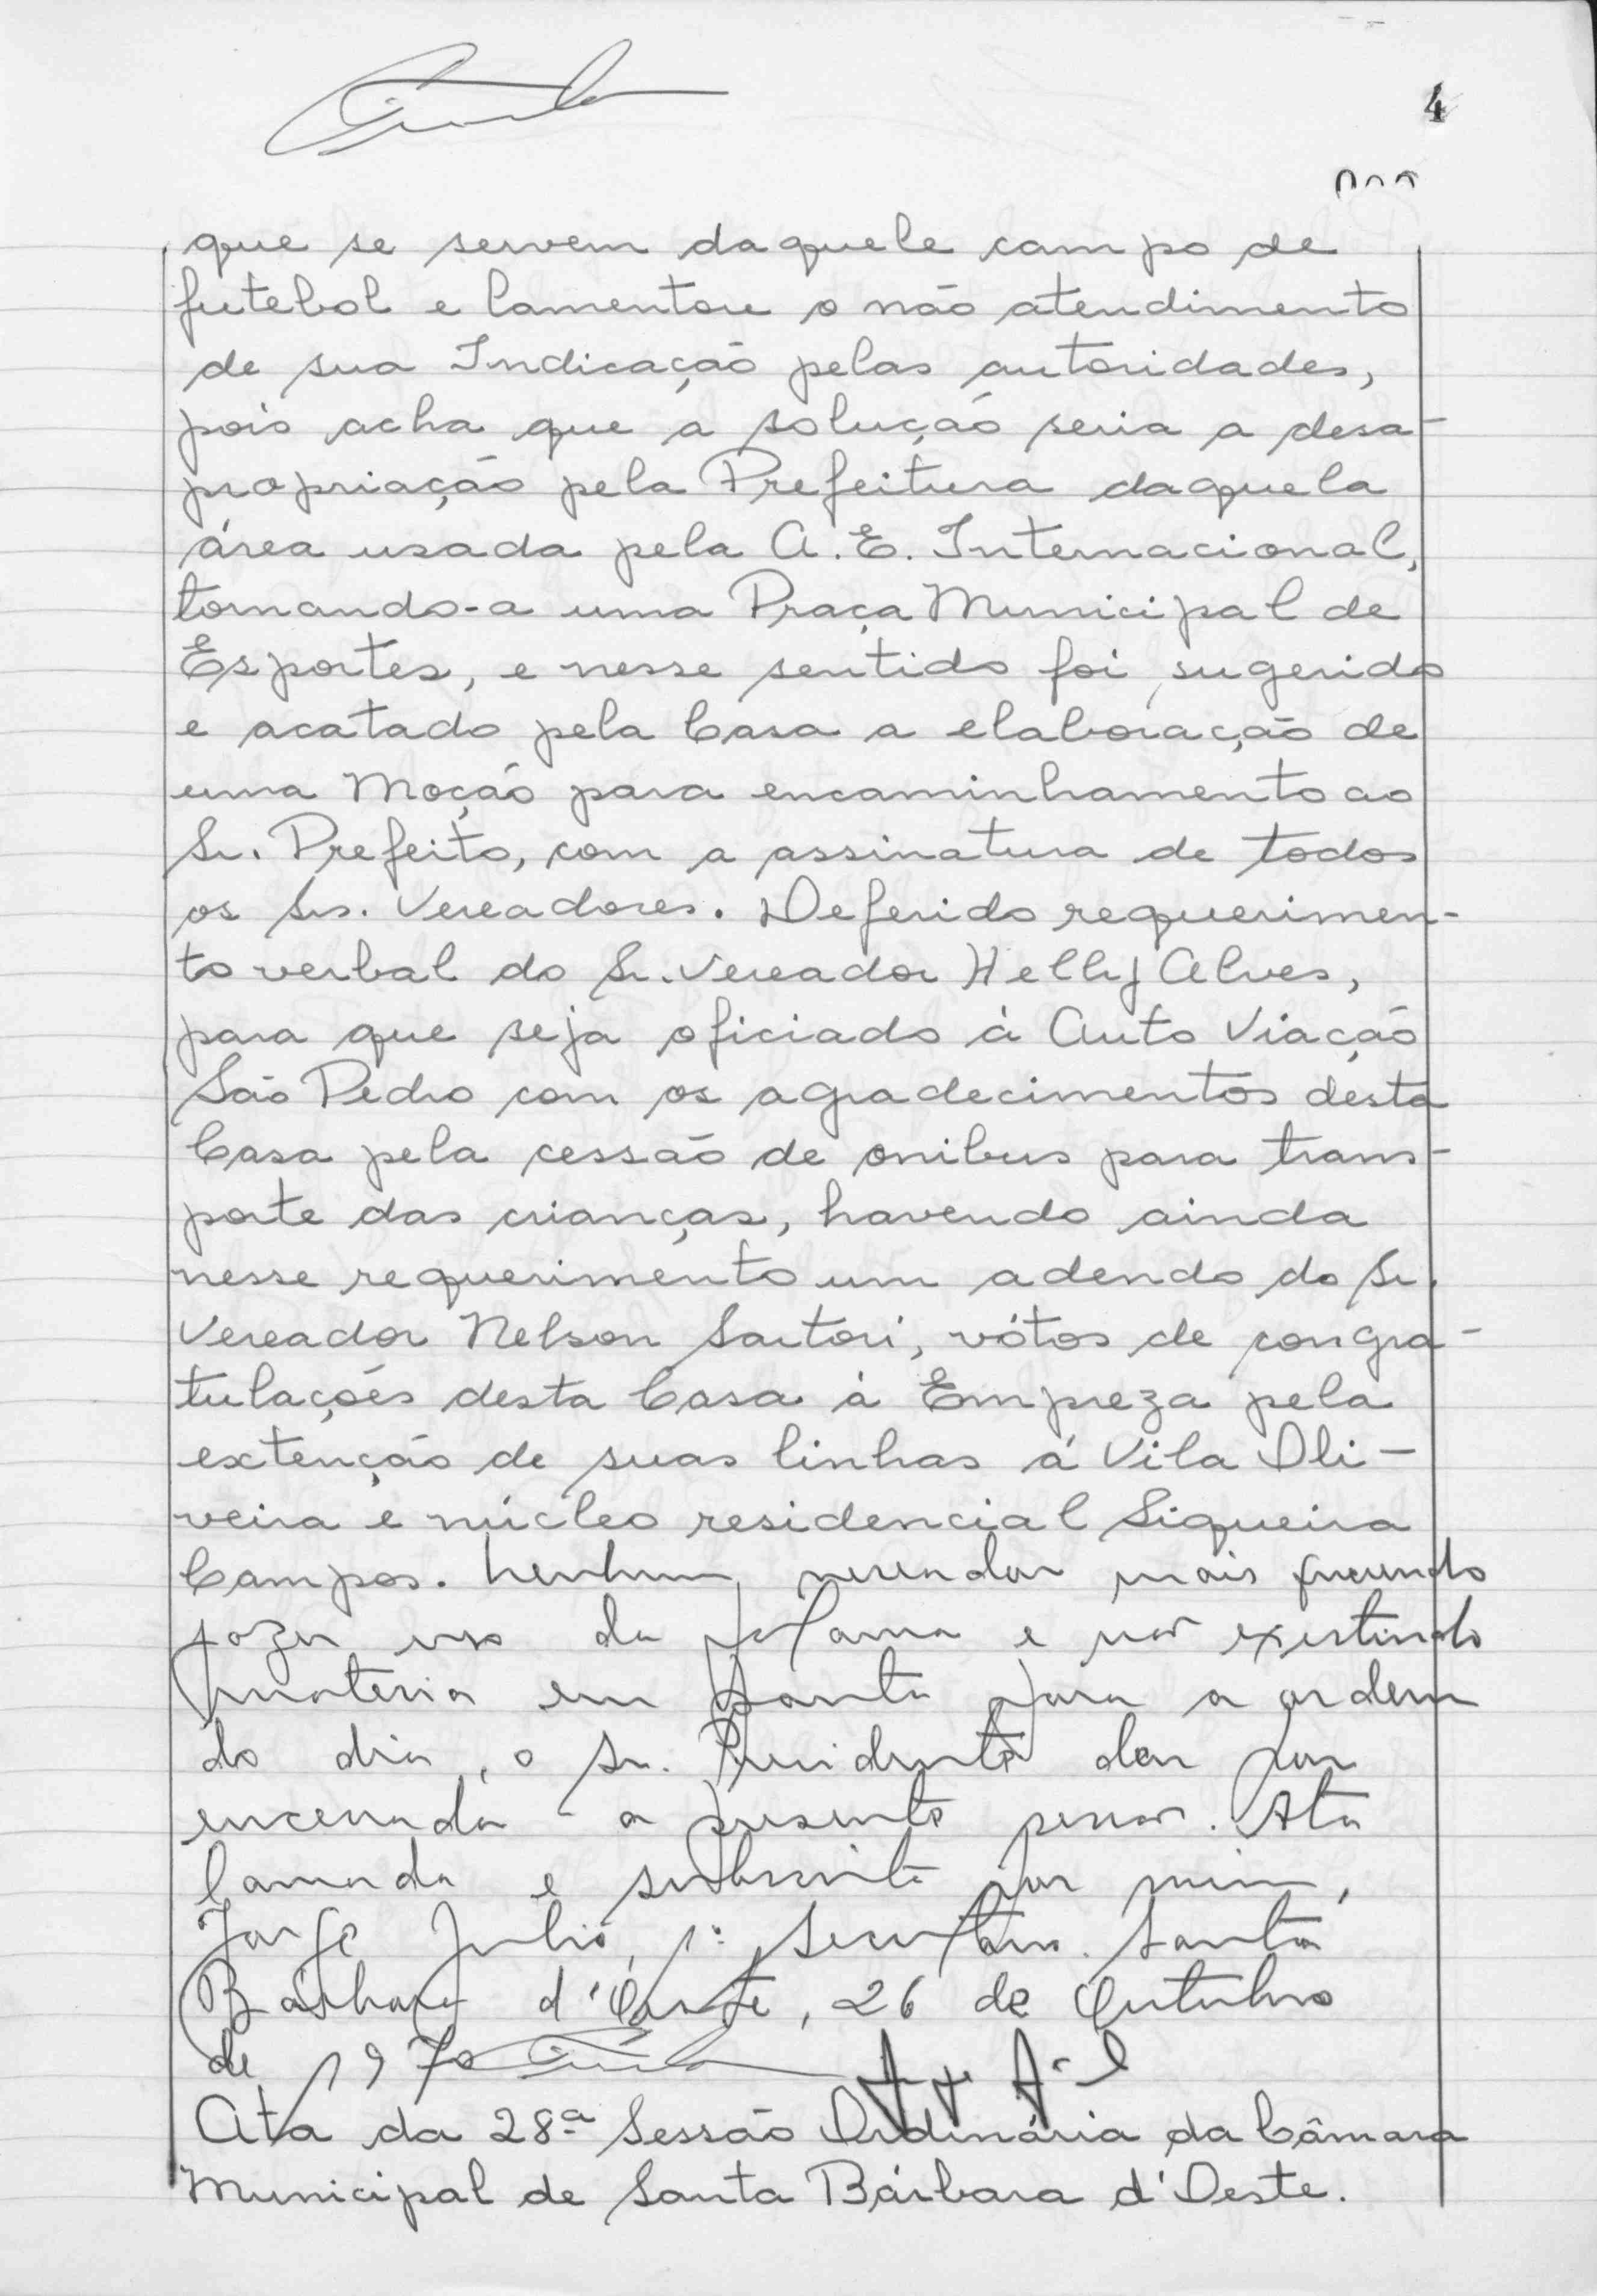 4
que se servem daquele campo de
futebol e lamentou o não atendimento
de sua Indicação pelas autoridades,
pois acha que a solução seria a desa-
propriação pela Prefeitura daquela
área usada pela A. E. Internacional,
tornando-a uma Praça Municipal de
Esportes, e nesse sentido foi sugerido
e acatado pela Casa a elaboração de
uma Moção para encaminhamento ao
Sr. Prefeito, com a assinatura de todos
os Srs. Vereadores. Deferido requerimen-
to verbal do Sr. Vereador Helly Alves,
para que seja oficiado à Auto Viação
São Pedro com os agradecimentos desta
Casa pela cessão de onibus para trans-
porte das crianças, havendo ainda
nesse requerimento um adendo do Sr.
Vereador Nelson Sartori, vótos de congra-
tulações desta Casa à Empreza pela
extenção de suas linhas á Vila Oli-
veira e núcleo residencial Siqueira
Campos. Nenhum vereador mais querendo
fazer uso da palavra e não existindo
materia em pauta para a ordem
do dia, o Sr. Presidente deu por
encerrada a presente sessão. Ata
lavrada e subscrita por mim,
Jorge Julio, 1º Secretário. Santa
Bárbara d'Oeste, 26 de Outubro
de 1970
Ata da 28ª Sessão Ordinária da Câmara
Municipal de Santa Bárbara d'Oeste.